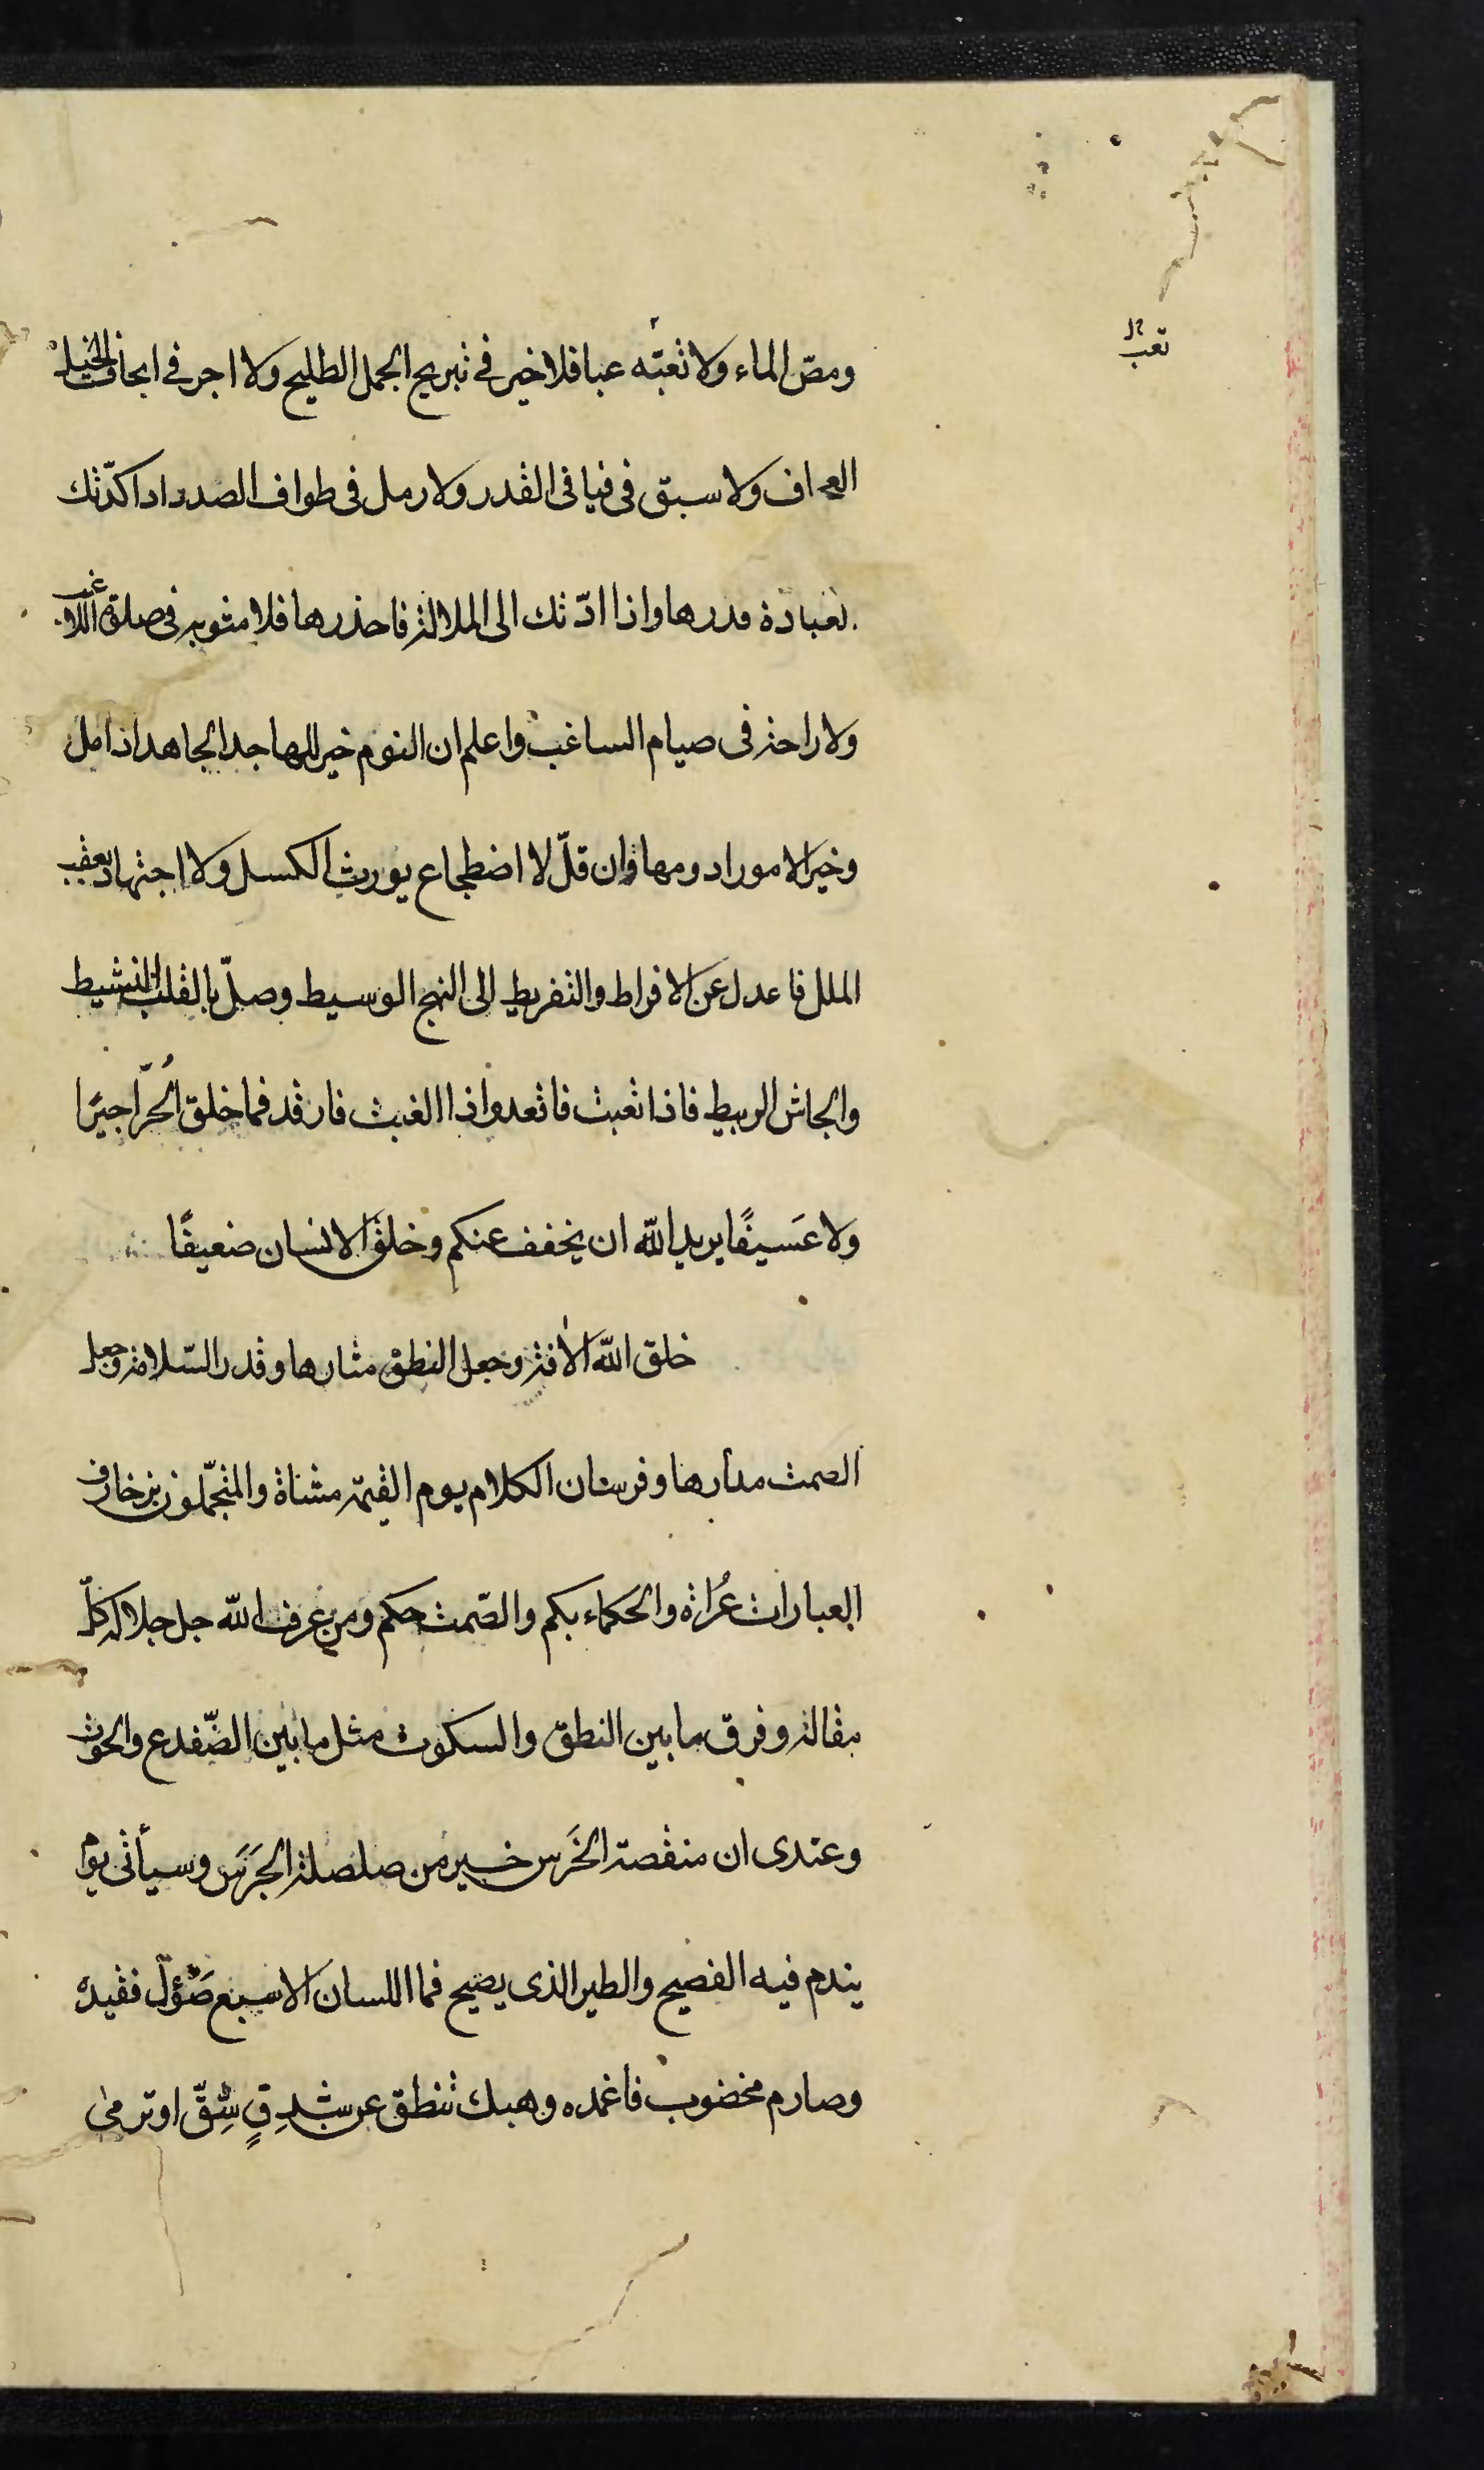 تعب
ومصّ الماء ولا تعبّه عبا فلا خير في تبريح الجمل الطليح ولا اجر في ايجاف الخيل
العجاف ولا سبق في فيافى القدر ولا رمل فى طواف الصدر اذا كدّتك
العبادة فدرها واذا ادّتك الى الملالة فاحذرها فلا مثوبة فى صلوة اللاغب
ولا راحة فى صيام الساغب واعلم ان النوم خير للهاجد الجاهد اذا مل
وخير الامور ادومها وان قلّ لا اضطجاع يورث الكسل ولا اجتهاد يعقب
الملل فاعدل عن الافراط والتفريط الى النهج الوسيط وصلّ بالقلب النشيط
والجاش الربيط فاذا تعبت فاقعد واذا الغبت فارقد فما خلق الحُرّ اجيرًا
ولا عَسيفًا يريد الله ان يخفف عنكم وخلق الانسان ضعيفًا
خلق الله الافة وجعل النطق مثارها وقدر السّلامة وجعل
الصمت مدارها وفرسان الكلام يوم القيمة مشاة والمتجمّلون بزخارف
العبارات عُراة والحكماء بكم والصّمت حكم ومن عرف الله جل جلاله كلّ
مقاله وفرق ما بين النطق والسكوت مثل ما بين الضّفدع والحوت
وعندى ان منقصة الخَرس خير من صلصلة الجَرَس وسيأتى يوم
يندم فيه الفصيح والطير الذى يصيح فما اللسان الا سبع صَؤُل فقيده
وصارم مخضوب فاغمده وهبك تنطق عن شِدقٍ شِقّ او ترمى